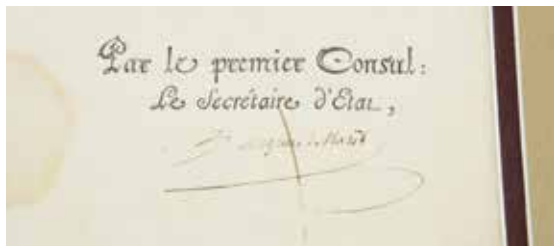 Par le premier Consul:
Le Secrétaire d'Etat,